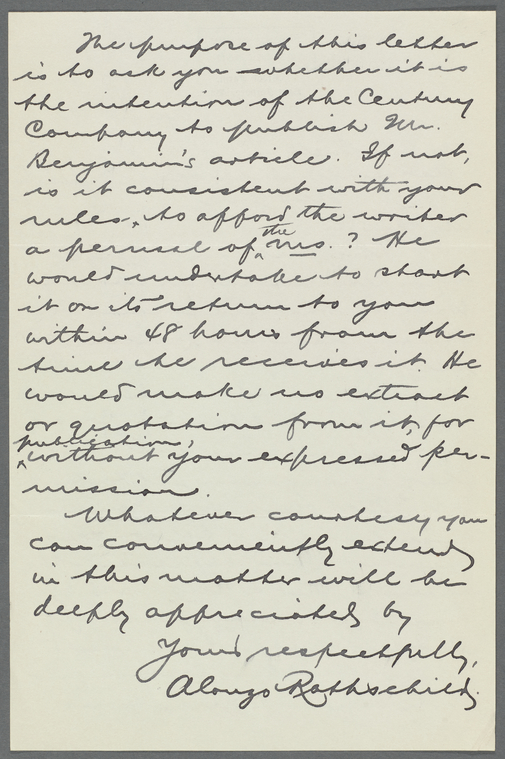 The purpose of this letter
is to ask you whether it is
the intention of the Century
Company to publish Mr.
Benjamin's article. If not,
is it consistent with your
rules, to afford the writer
a perusal of the ms.? He
would undertake to start
it on its return to you
within 48 hours from the
time he receives it. He
would make no extract
or quotation from it, for
publication,
without your expressed per-
mission.
Whatever courtesy you
can conveniently extend
in this matter will be
deeply appreciated by
Yours respectfully,
Alonzo Rothschild.